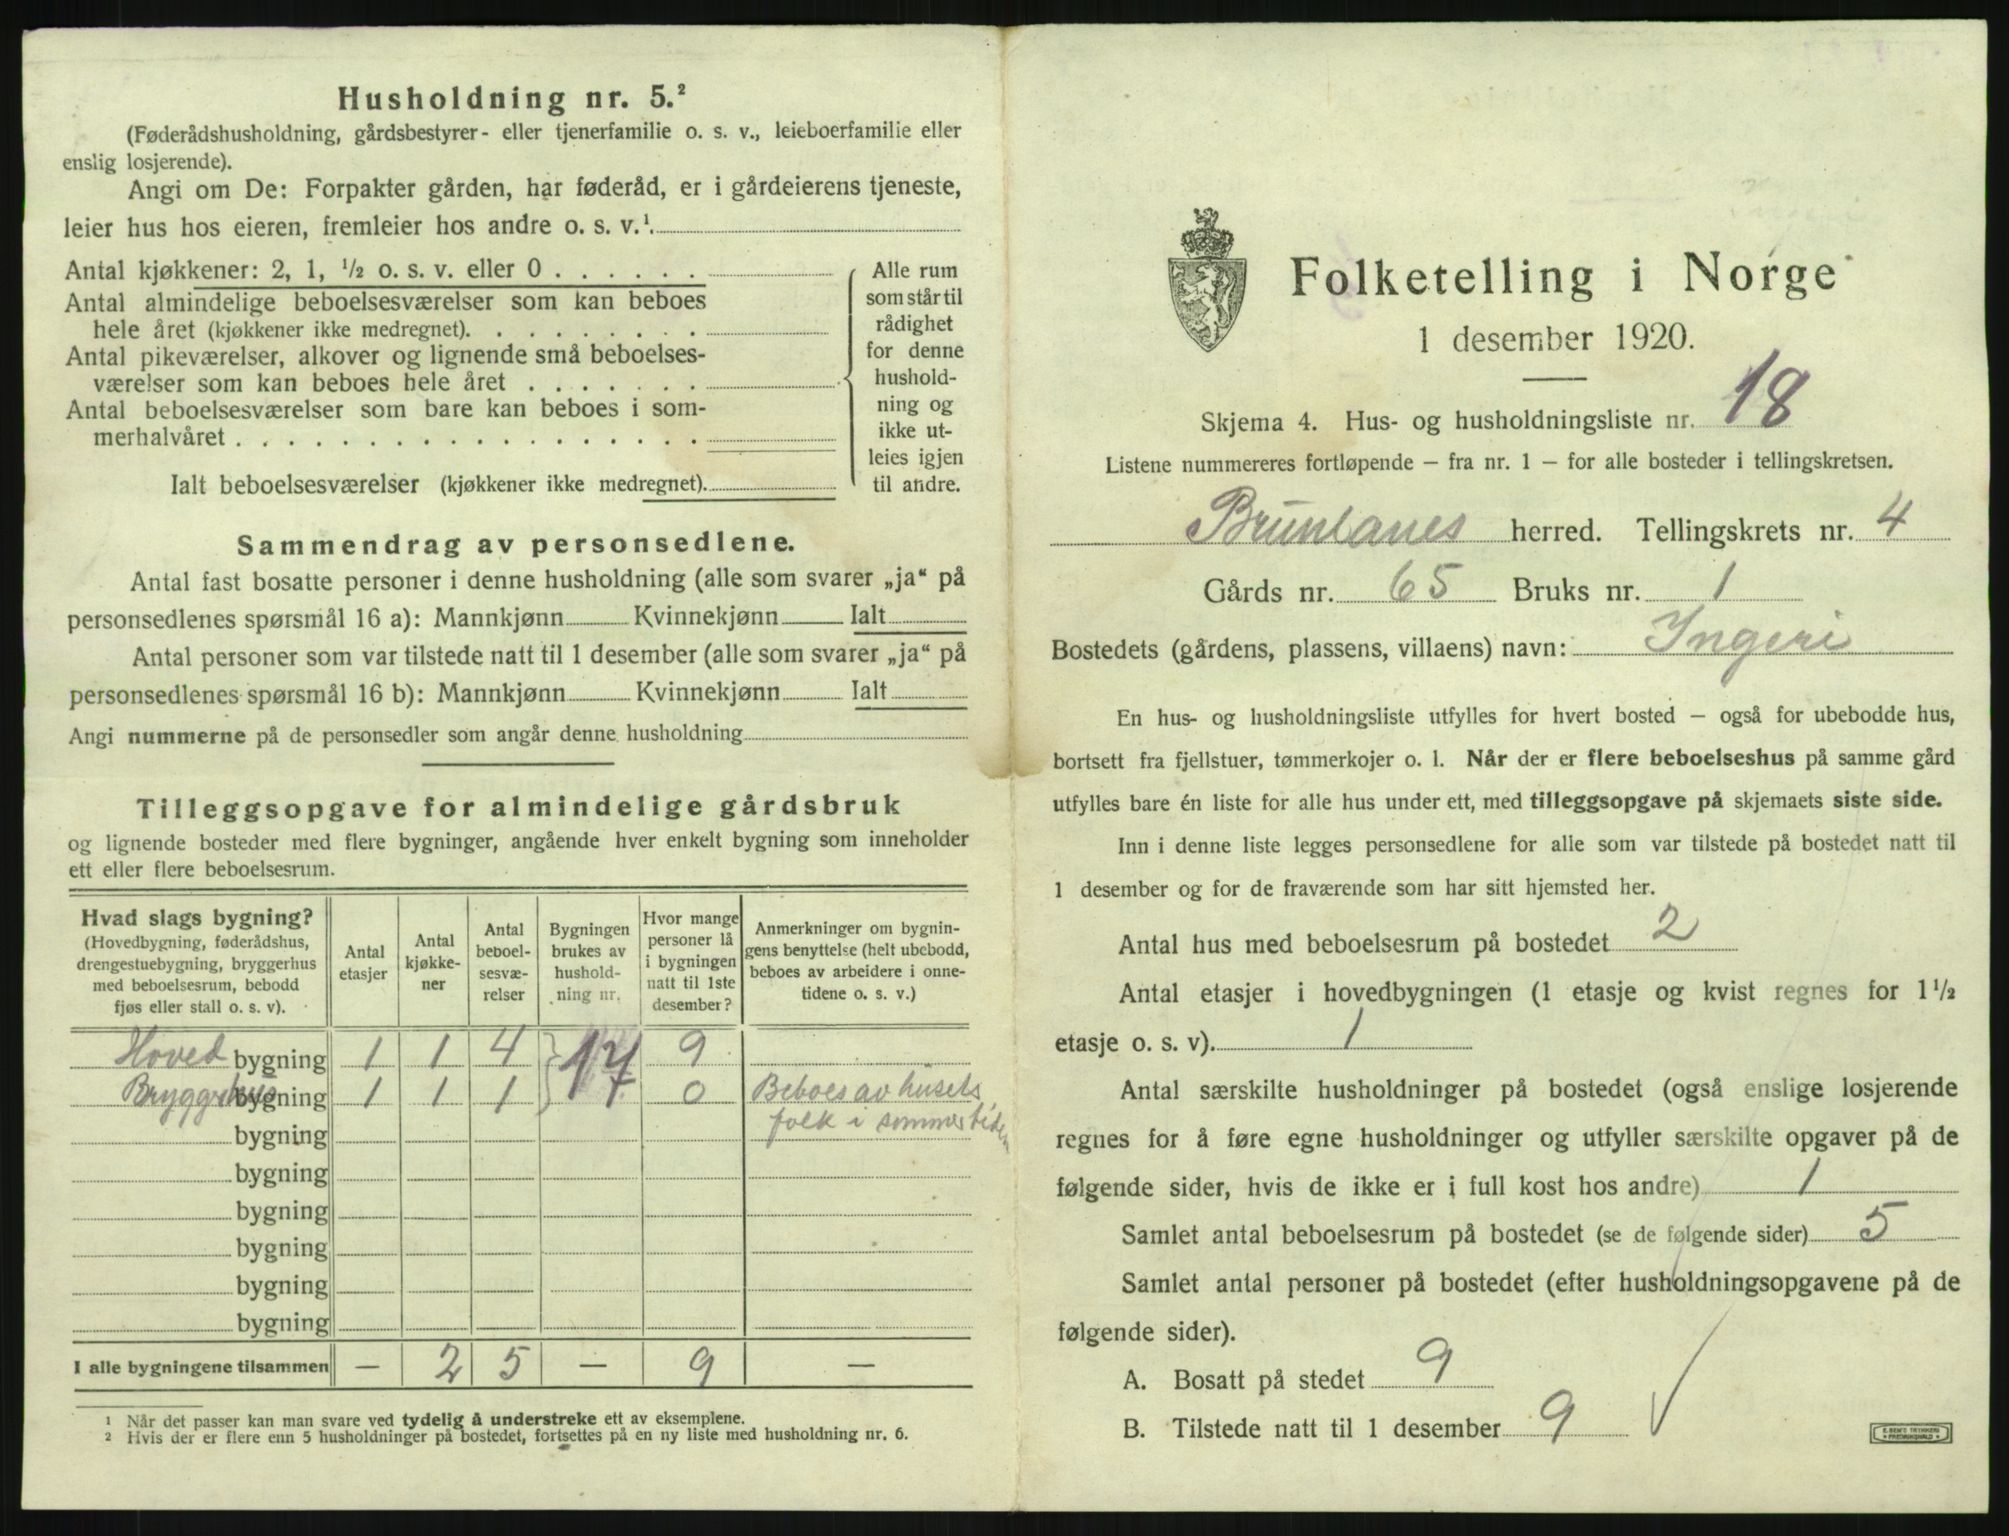 Husholdning nr. 5.²
(Føderådshusholdning, gårdsbestyrer- eller tjenerfamilie o. s. v., leieboerfamilie eller
enslig losjerende).
Angi om De: Forpakter gården, har føderåd, er i gårdeierens tjeneste,
leier hus hos eieren, fremleier hos andre o. s. v.¹.
Antal kjøkkener: 2, 1, ½ o. s. v. eller 0 . . . . . .
Antal almindelige beboelsesværelser som kan beboes
hele året (kjøkkener ikke medregnet). . . . . . . . .
Antal pikeværelser, alkover og lignende små beboelses-
værelser som kan beboes hele året . . . . . . .
Antal beboelsesværelser som bare kan beboes i som-
merhalvåret . . . . . . . . . . . . . . . . .
Ialt beboelsesværelser (kjøkkener ikke medregnet).
Alle rum
som står til
rådighet
for denne
hushold-
ning og
ikke ut-
leies igjen
til andre.
Sammendrag av personsedlene.
Antal fast bosatte personer i denne husholdning (alle som svarer „ja“ på
personsedlenes spørsmål 16 a): Mannkjønn Kvinnekjønn Ialt
Antal personer som var tilstede natt til 1 desember (alle som svarer „ja“ på
personsedlenes spørsmål 16 b): Mannkjønn Kvinnekjønn Ialt
Angi nummerne på de personsedler som angår denne husholdning
Tilleggsopgave for almindelige gårdsbruk
og lignende bosteder med flere bygninger, angående hver enkelt bygning som inneholder
ett eller flere beboelsesrum.
Hvad slags bygning?
(Hovedbygning, føderådshus,
drengestuebygning, bryggerhus
med beboelsesrum, bebodd
fjøs eller stall o. s. v).
Antal
etasjer
Antal
kjøkke-
ner
Antal
beboel-
sesvæ-
relser
Bygningen
brukes av
hushold-
ning nr.
Hvor mange
personer lå
i bygningen
natt til 1ste
desember?
Anmerkninger om bygnin-
gens benyttelse (helt ubebodd,
beboes av arbeidere i onne-
tidene o. s. v.)
Hoved bygning 1 1 4 9
Bryggerhus bygning 1 1 1 0 Beboes av husets
bygning folk i sommertiden
bygning
bygning
bygning
bygning
bygning
I alle bygningene tilsammen — 2 5 — 9 —
¹ Når det passer kan man svare ved tydelig å understreke ett av eksemplene.
² Hvis der er flere enn 5 husholdninger på bostedet, fortsettes på en ny liste med husholdning nr. 6.
Folketelling i Norge
1 desember 1920.
Skjema 4. Hus- og husholdningsliste nr. 18
Listene nummereres fortløpende — fra nr. 1 — for alle bosteder i tellingskretsen.
Brunlanes herred. Tellingskrets nr. 4
Gårds nr. 65 Bruks nr. 1
Bostedets (gårdens, plassens, villaens) navn: Ingeri
En hus- og husholdningsliste utfylles for hvert bosted — også for ubebodde hus,
bortsett fra fjellstuer, tømmerkojer o. l. Når der er flere beboelseshus på samme gård
utfylles bare én liste for alle hus under ett, med tilleggsopgave på skjemaets siste side.
Inn i denne liste legges personsedlene for alle som var tilstede på bostedet natt til
1 desember og for de fraværende som har sitt hjemsted her.
Antal hus med beboelsesrum på bostedet 2
Antal etasjer i hovedbygningen (1 etasje og kvist regnes for 1½
etasje o. s. v). 1
Antal særskilte husholdninger på bostedet (også enslige losjerende
regnes for å føre egne husholdninger og utfyller særskilte opgaver på de
følgende sider, hvis de ikke er i full kost hos andre) 1
Samlet antal beboelsesrum på bostedet (se de følgende sider) 5
Samlet antal personer på bostedet (efter husholdningsopgavene på de
følgende sider).
A. Bosatt på stedet 9
B. Tilstede natt til 1 desember 9